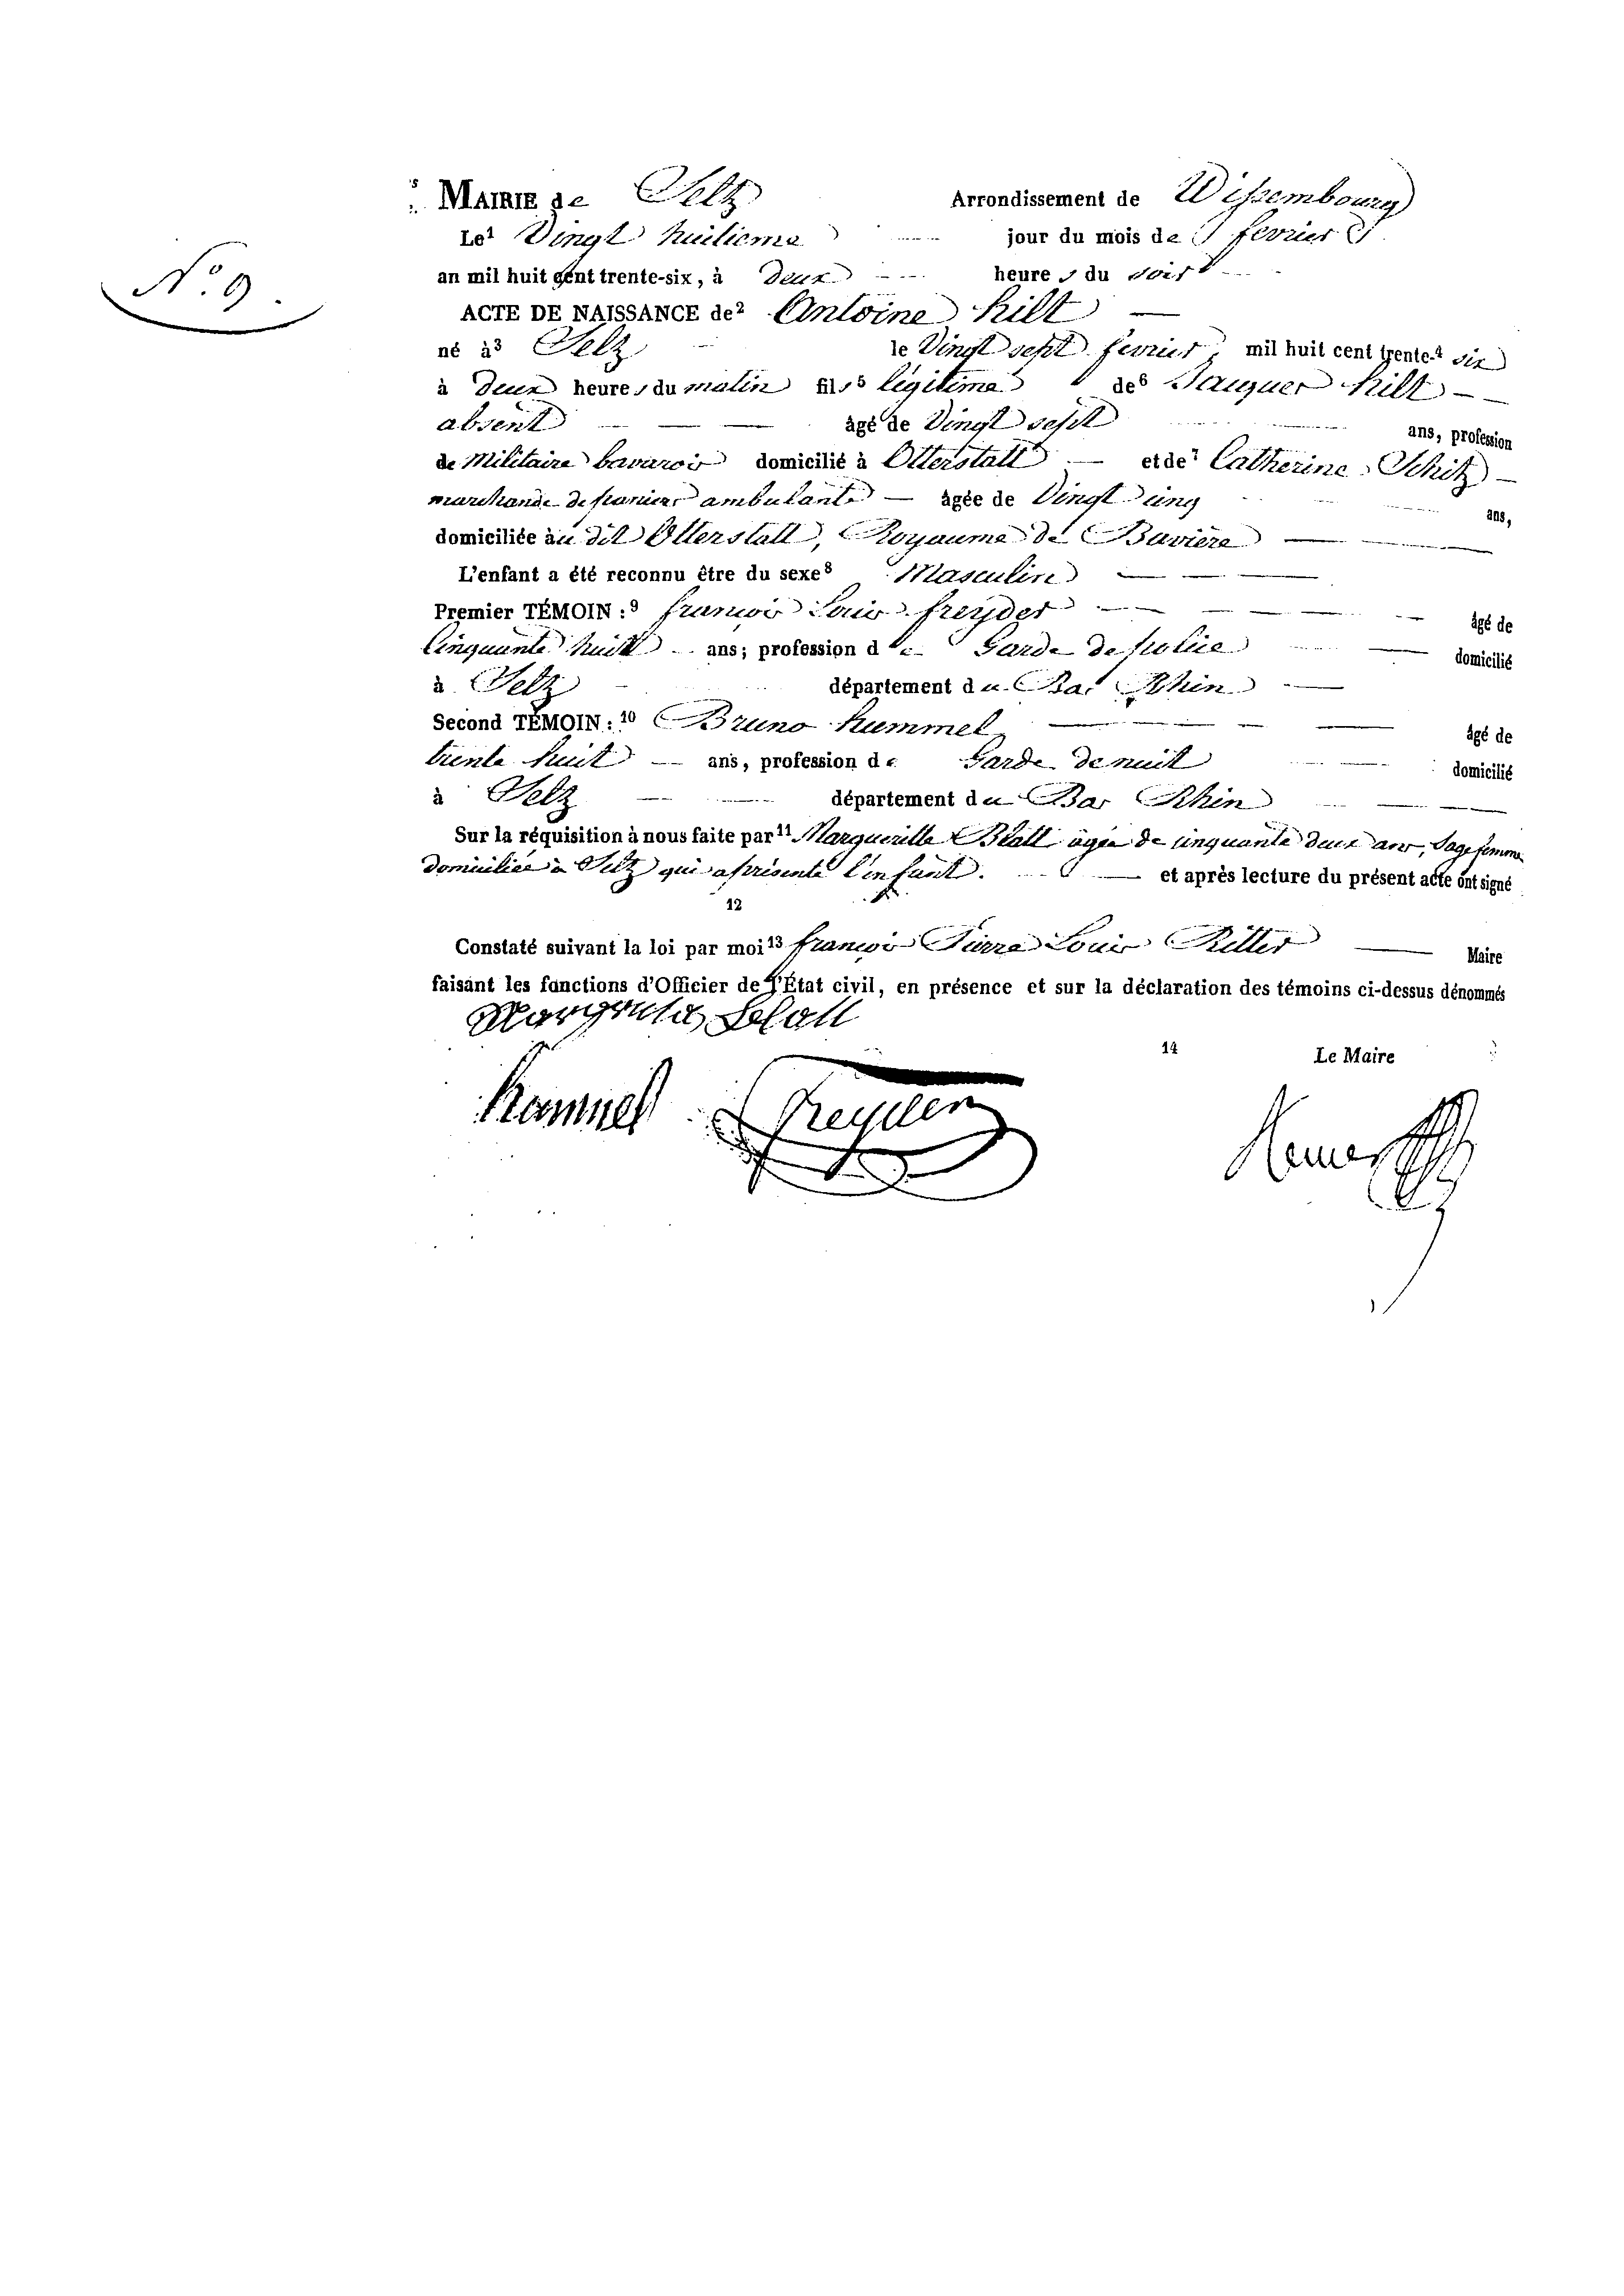 MAIRIE de Seltz Arrondissement de Wissembourg
Le1 Vingt huitieme jour du mois de fevrier
N.° 9.
an mil huit cent trente-six, à deux heures du soir
ACTE DE NAISSANCE de2 Antoine hilt
né à3 Seltz le Vingt sept fevrier, mil huit cent trente-4 six
à deux heures du matin fils5 légitime de6 Jacques hilt
absent âgé de Vingt sept ans, profession
de Militaire bavarois domicilié à Otterstatt et de7 Catherine Schitz
marchande de paniers ambulante âgée de Vingt ung ans,
domiciliée au dit Otterstatt, Royaume de Bavière
L'enfant a été reconnu être du sexe8 Masculin
Premier TÉMOIN:9 francois Louis freyder âgé de
Cinquante huit ans; profession de Garde de police domicilié
à Seltz département du Bas Rhin
Second TÉMOIN:10 Bruno hummel âgé de
trente huit ans, profession de Garde de nuit domicilié
à Seltz département du Bas Rhin
Sur la réquisition à nous faite par11 Margueritte Blatt âgée de cinquante deux ans, Sage femme
domiciliée à Seltz qui a présenté l'enfant. et après lecture du présent acte ont signé
12
Constaté suivant la loi par moi13 francois Pierre Louis Ritter Maire
faisant les fonctions d'Officier de l'État civil, en présence et sur la déclaration des témoins ci-dessus dénommés
Margreta Blatt
14 Le Maire
Hummel Freyder